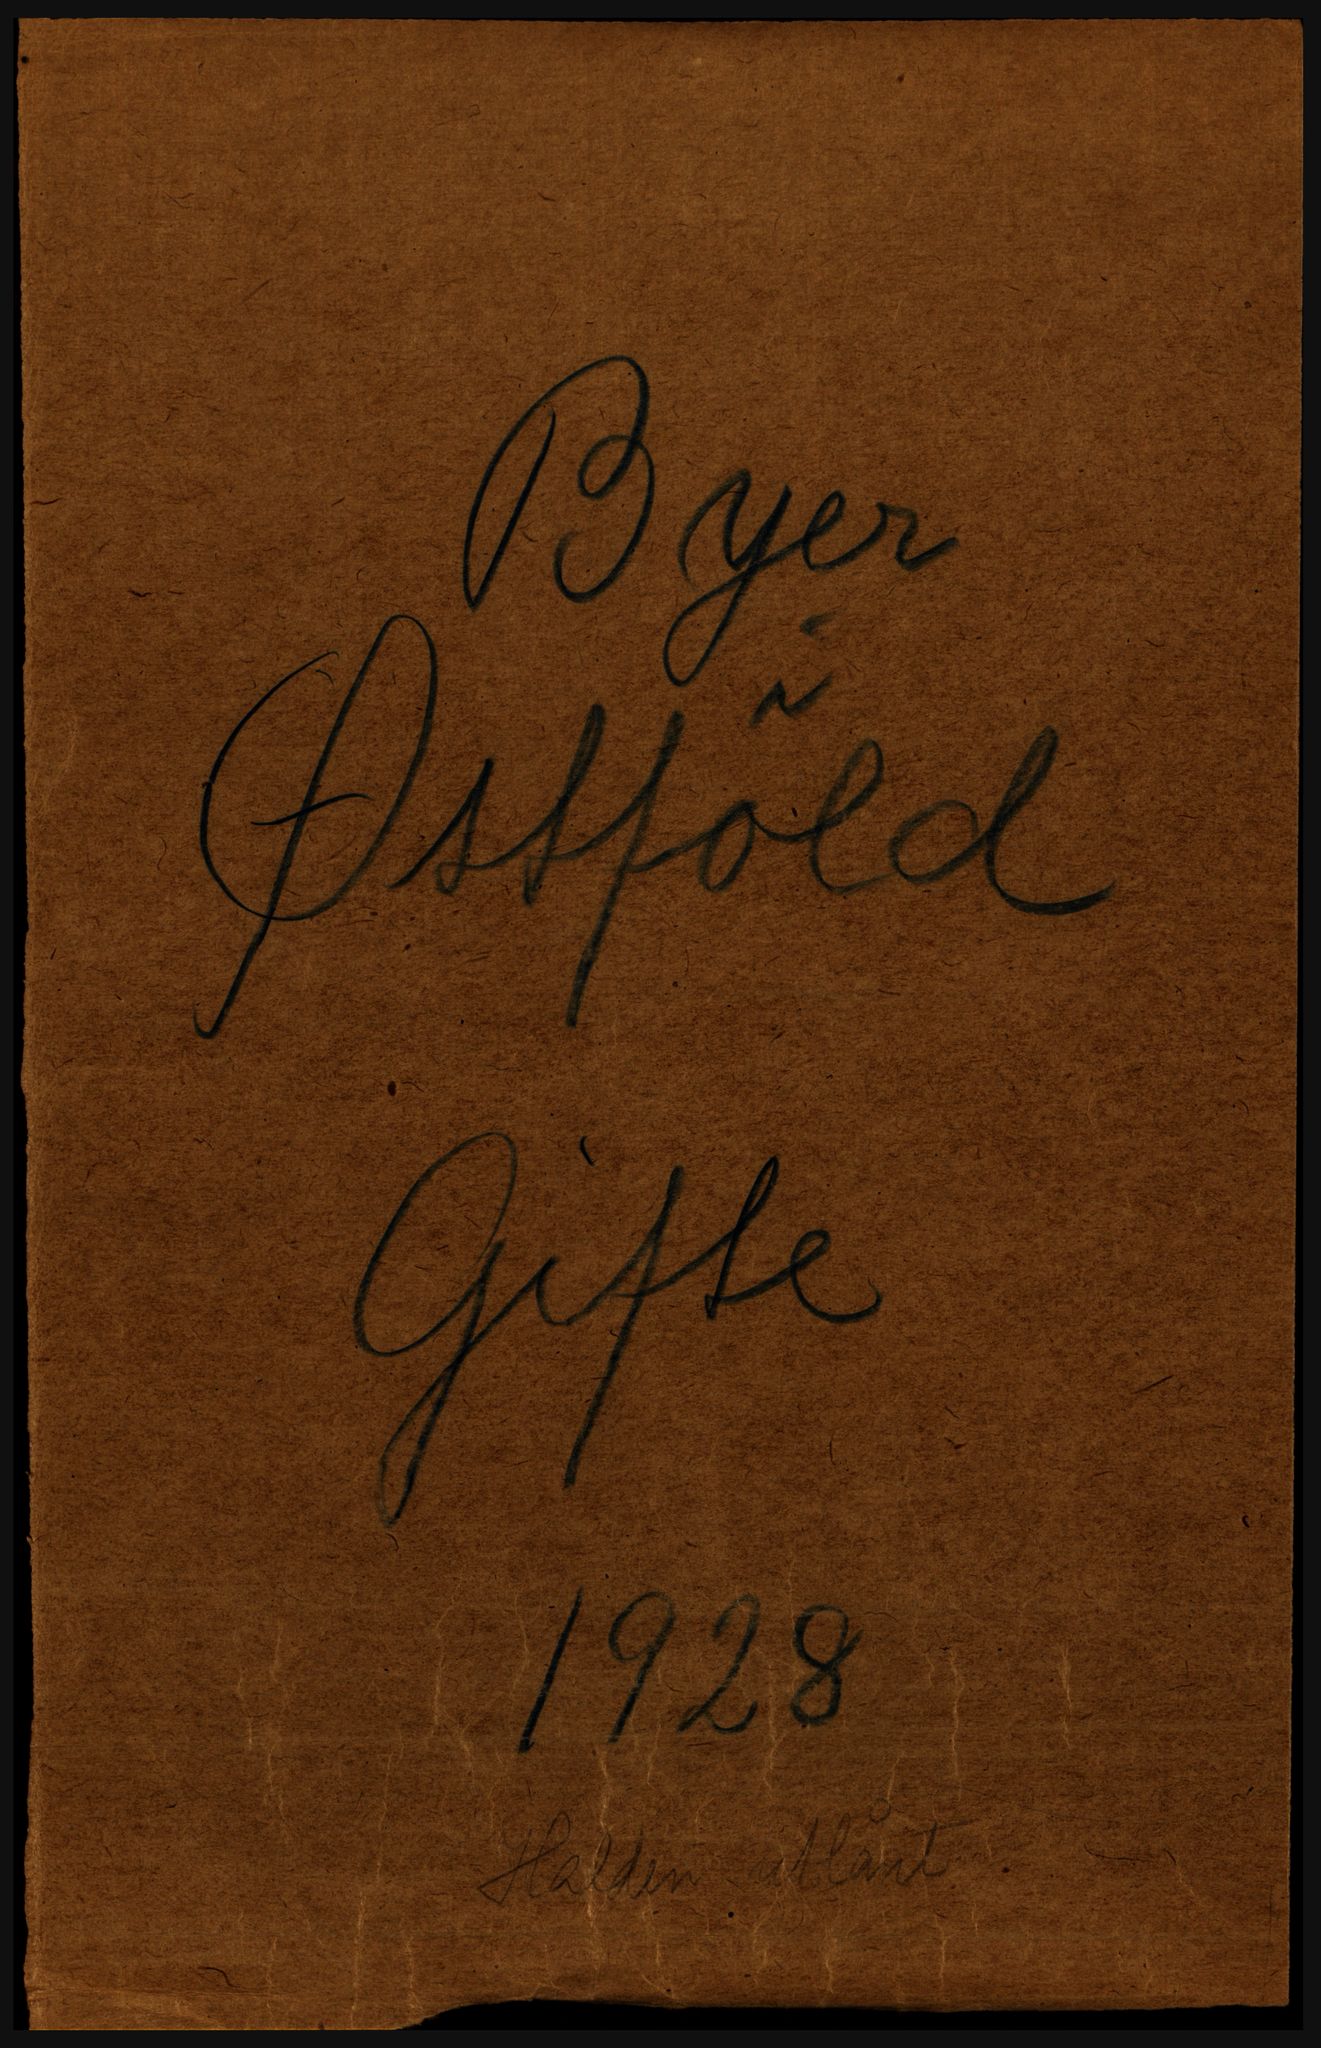 Byer
Østfold
Gifte
1928
Halden utlånt